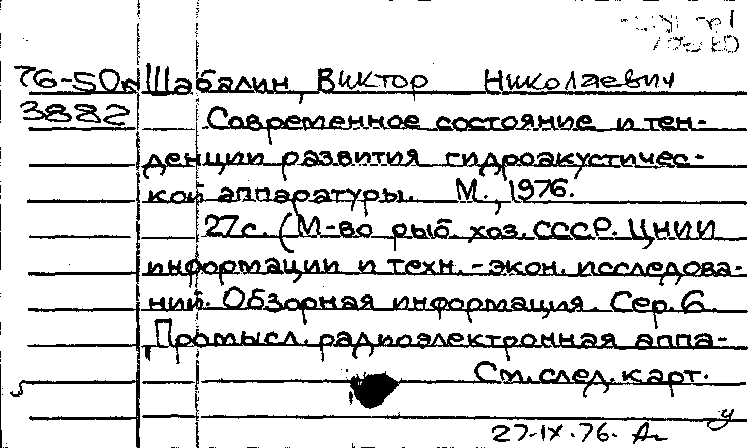 76-50 Шабалин, Виктор Николаевич
3882 Современное состояние и тен-
денции развития гидроакустичес-
кой аппаратуры. М., 1976.
27с. (М-во рыб. хоз. СССР. ЦНИИ
информации и техн.-экон. исследова-
ний. Обзорная информация. Сер. 6.
Промысл. радиоэлектронная аппа-
См. след. карт.
27-IX.76.